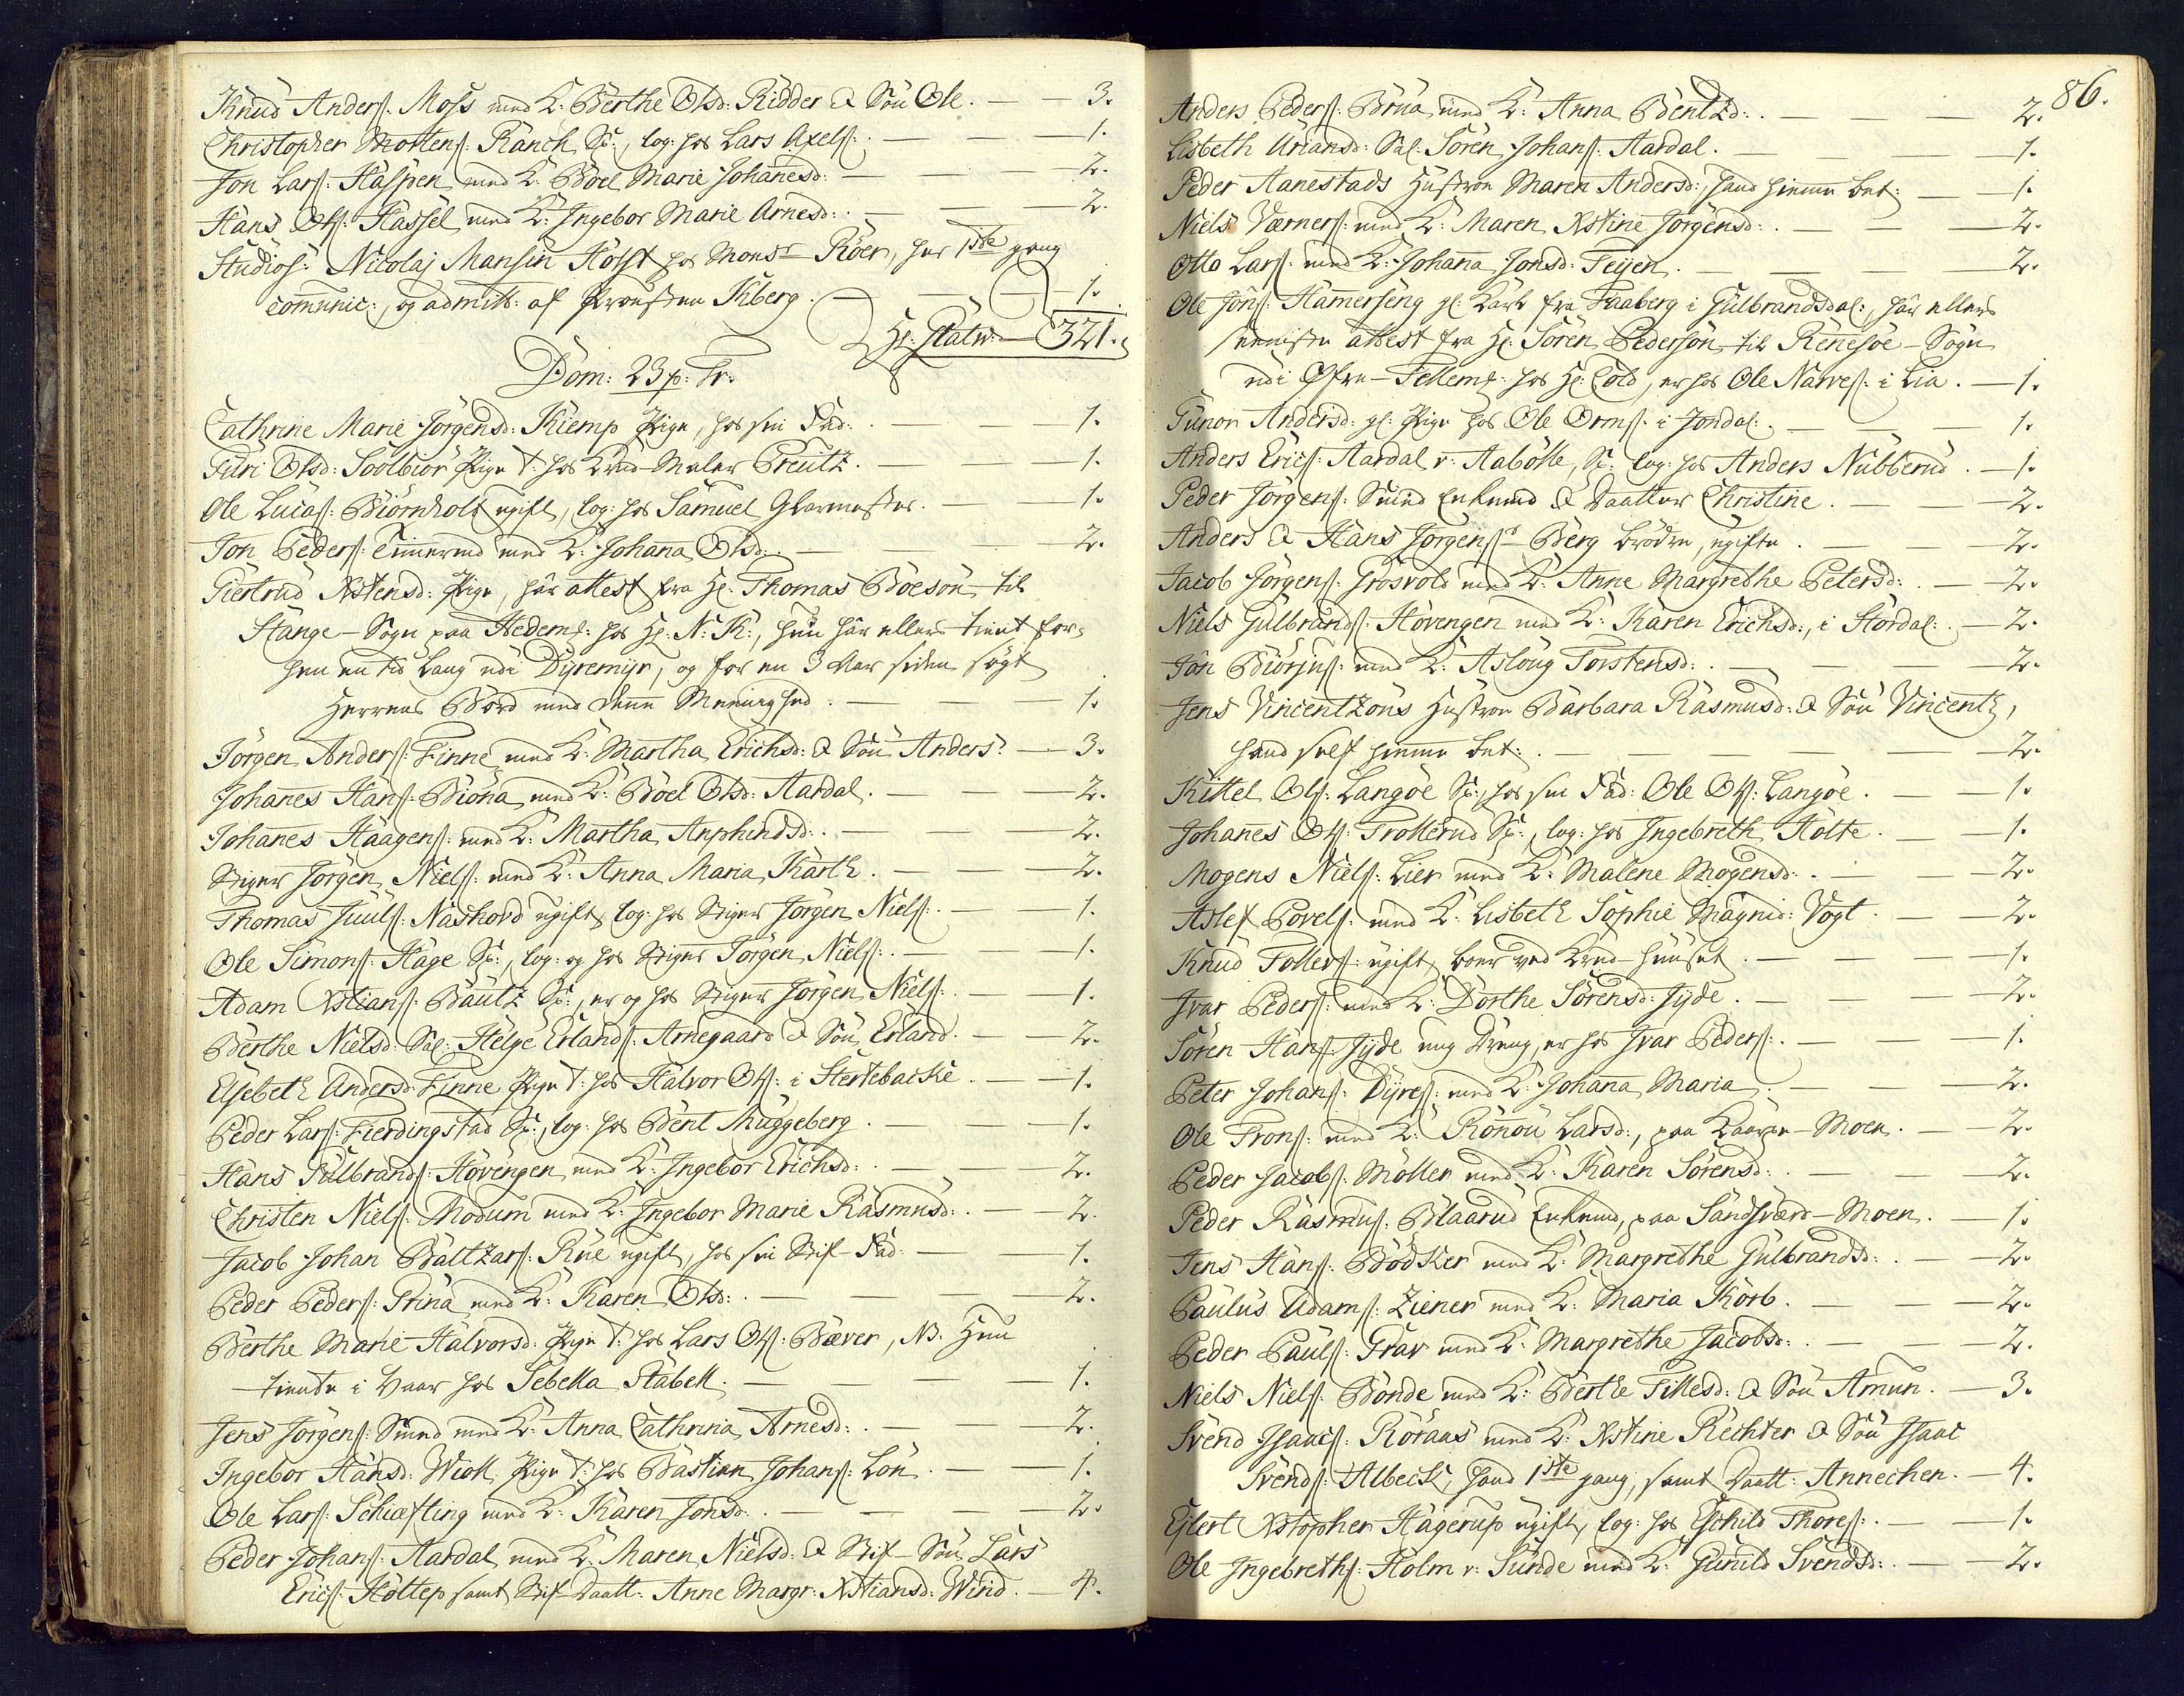 Knud Anders: Moss med K: Berthe Olsd: Ridder & Søn Ole. — 3.
Christopher Mortens: Ranch Sv:, log: hos Lars Axels: — 1.
Jon Lars: Haspen med K: Boel Marie Johanesd: — 2.
Hans Ols: Hassel med K: Ingebor Marie Arnesd: — 2.
Studios: Nicolaj Mansin Holst hos Monsr Röer, har 1ste gang
comunic:, og admitt: af Provsten Kiberg. — 1.
321.
Dom: 23 p: Tr:
Cathrine Marie Jörgensd: Kiemp Pige, hos sin Fad: — 1.
Turi Olsd: Soolbiör Pige t: hos Krud-Maler Preütz. — 1.
Ole Lucas: Biörnholt ugift, log: hos Samuel Glarmester. — 1.
Jon Peders: Timerud med K: Johana Olsd: — 2.
Giertrud Xstensd: Pige, har attest fra Hr. Thomas Boeson til
Stange-Sogn paa Hedem: hos Hr: N: K:, hun har ellers tient for-
hen en tid lang udi Dyremyr, og for en 3 Aar siden søgt
Herrens Bord med denne Menighed. — 1.
Jörgen Anders: Finne med K: Martha Erichsd: & Søn Anders. — 3.
Johanes Hans: Biöna med K: Boel Olsd: Aardal. — 2.
Johanes Haagens: med K: Martha Anphindsd: — 2.
Stiger Jörgen Niels: med K: Anna Maria Karth. — 2.
Thomas Juuls: Nashovd ugift, log: hos Stiger Jörgen Niels: — 1.
Ole Simons: Hage Sv:, log: og hos Stiger Jörgen Niels: — 1.
Adam Xstians: Bautz Sv:, er og hos Stiger Jörgen Niels: — 1.
Berthe Nielsd: Sal: Helge Erlands: Arnegaard & Søn Erland. — 2.
Elsebeth Andersd: Finne Pige t: hos Halvor Ols: i Stertebacke. — 1.
Peder Lars: Fierdingstad Sv:, log: hos Bent Muggeberg. — 1.
Hans Gulbrands: Hövengen med K: Ingebor Erichsd: — 2.
Christen Niels: Modum med K: Ingebor Marie Rasmusd: — 2.
Jacob Johan Baltzars: Rüe ugift, hos sin Stif-Fad: — 1.
Peder Peders: Prina med K: Karen Olsd: — 2.
Berthe Marie Halvorsd: Pige t: hos Lars Ols: Bæver, NB. Hun
tiente i Vaar hos Sebella Stabell. — 1.
Jens Jörgens: Smed med K: Anna Cathrina Arnesd: — 2.
Ingebor Hansd: Wioll Pige t: hos Bastian Johans: Lön. — 1.
Ole Lars: Schiefting med K: Karen Jonsd: — 2.
Peder Johans: Aardal med K: Maren Nielsd: & Stif-Søn Lars
Erics: Holtep samt Stif-Daatt: Anne Margr: Xstiansd: Wind. — 4.
86.
Anders Peders: Brua med K: Anna Bentzd: — 2.
Lisbeth Ariansd: Sal: Sören Johans: Aardal. — 1.
Peder Aanestads Hustroe Maren Andersd:, hand hiemme bet: — 1.
Niels Værners: med K: Maren Xstine Jörgensd: — 2.
Otto Lars: med K: Johana Jonsd: Teijen. — 2.
Ole Jöns: Hamerseng gl: Karl fra Faaberg i Gulbrandsdal:, har ellers
seeniste attest fra Hr: Sören Pedersön til Renesöe-Sogn
udi Øfre-Tellem: hos Hr: Cold, er hos Ole Narves: i Lia. — 1.
Gunor Andersd: gl: Pige hos Ole Orms: i Jondal: — 1.
Anders Erics: Aardal v: Aabölle, Sv: log: hos Anders Nubberud. — 1.
Peder Jörgens: Smed Enkemd & Daatter Christine. — 2.
Anders & Hans Jörgens:r Berg brödre, ugifte. — 2.
Jacob Jörgens: Grosvold med K: Anne Margrethe Petersd: — 2.
Niels Gulbrands: Hövengen med K: Karen Erichsd:, i Stordal: — 2.
Jön Biörjus: med K: Aslöug Torstensd: — 2.
Jens Vincentzöns Hustroe Barbara Rasmusd: & Søn Vincentz,
hand self hiemme bet: — 2.
Kittel Ols: Langöe Sv:, hos sin Fad: Ole Ols: Langöe. — 1.
Johanes Ols: Trollerud Sv:, log: hos Ingebreth Holte. — 1.
Mogens Niels: Lier med K: Malene Mogensd: — 2.
Aslef Povels: med K: Lisbeth Sophie Magnid: Vogt. — 2.
Knud Tollefs: ugift, boer ved Krud-Huuset. — 1.
Ivar Peders: med K: Dorthe Sörensd: Jyde. — 2.
Sören Hans: Jyde ung Dreng, er hos Ivar Peders: — 1.
Peter Johans: Dyres: med K: Johana Maria. — 2.
Ole Trons: med K: Rönou Larsd:, paa Laugen-Moen. — 2.
Peder Jacobs: Möller med K: Karen Sörensd: — 2.
Peder Rasmus: Blaarud Enkemd, paa Sandsværd-Moen. — 1.
Jens Hans: Bödker med K: Margrethe Gulbrandsd: — 2.
Paulus Adams: Ziener med K: Maria Korb. — 2.
Peder Pauls: Grav med K: Margrethe Jacobsd: — 2.
Niels Niels: Bonde med K: Berthe Tillesd: & Søn Amun. — 3.
Svend Isaacs: Röraas med K: Xstine Rechter & Søn Isaac
Svends: Albeck, hand 1ste gang, samt Daatt: Annechen. — 4.
Ejlert Xstopher Hagerup ugift, log: hos Eschild Thores: — 1.
Ole Ingebreths: Holm v: Sunde med K: Gunild Svendsd: — 2.